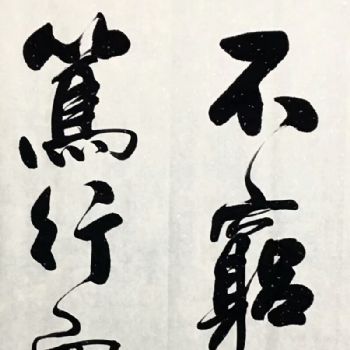 不窮
篤行而